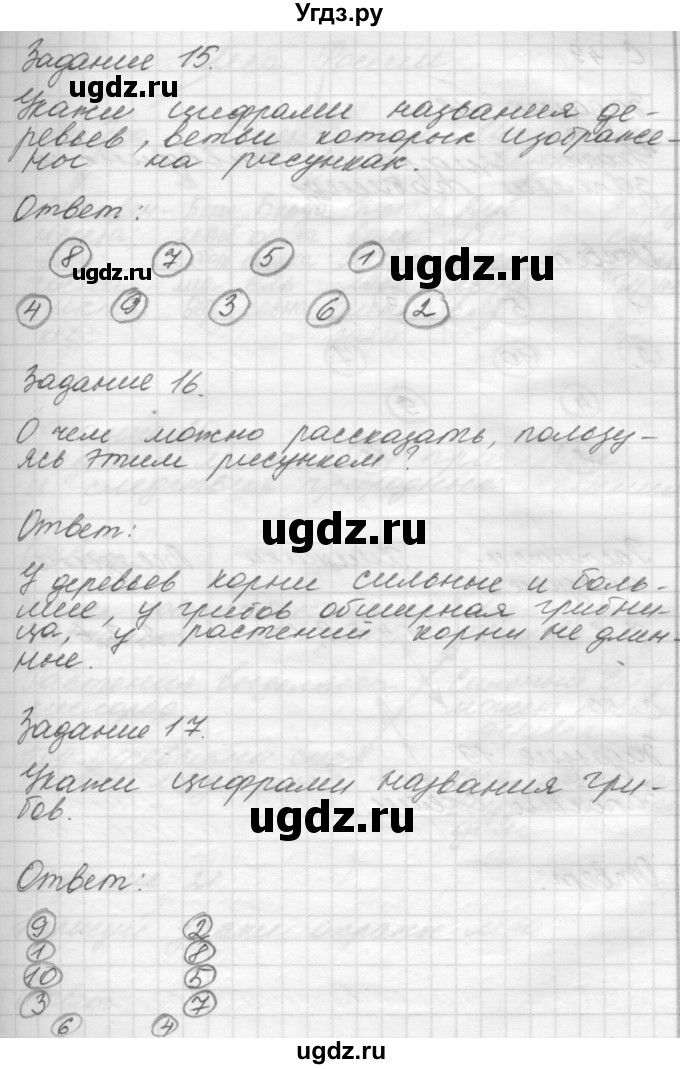 Угдз.ру
Задание 15.
ugdz.ru
Укажи цифрами названия де-
ревьев, ветви которых изображе-
ны на рисунках.
Ответ:
8 7 5 1
ugdz.ru ugdz.ru
4 9 3 6 2
Задание 16.
О чем можно рассказать, пользу-
ясь этим рисунком?
ugdz.ru
Ответ:
У деревьев корни сильные и боль-
шие, у грибов обширная грибни-
ца, у растений корни не длин-
ные.
Задание 17.
Укажи цифрами названия гри-
бов.
ugdz.ru
Ответ:
9 2
1 8
10 5
3 7
6 4
ugdz.ru